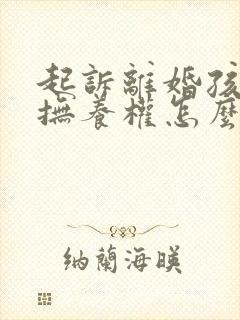 起訴離婚孩
撫養權怎麼
納蘭海暎